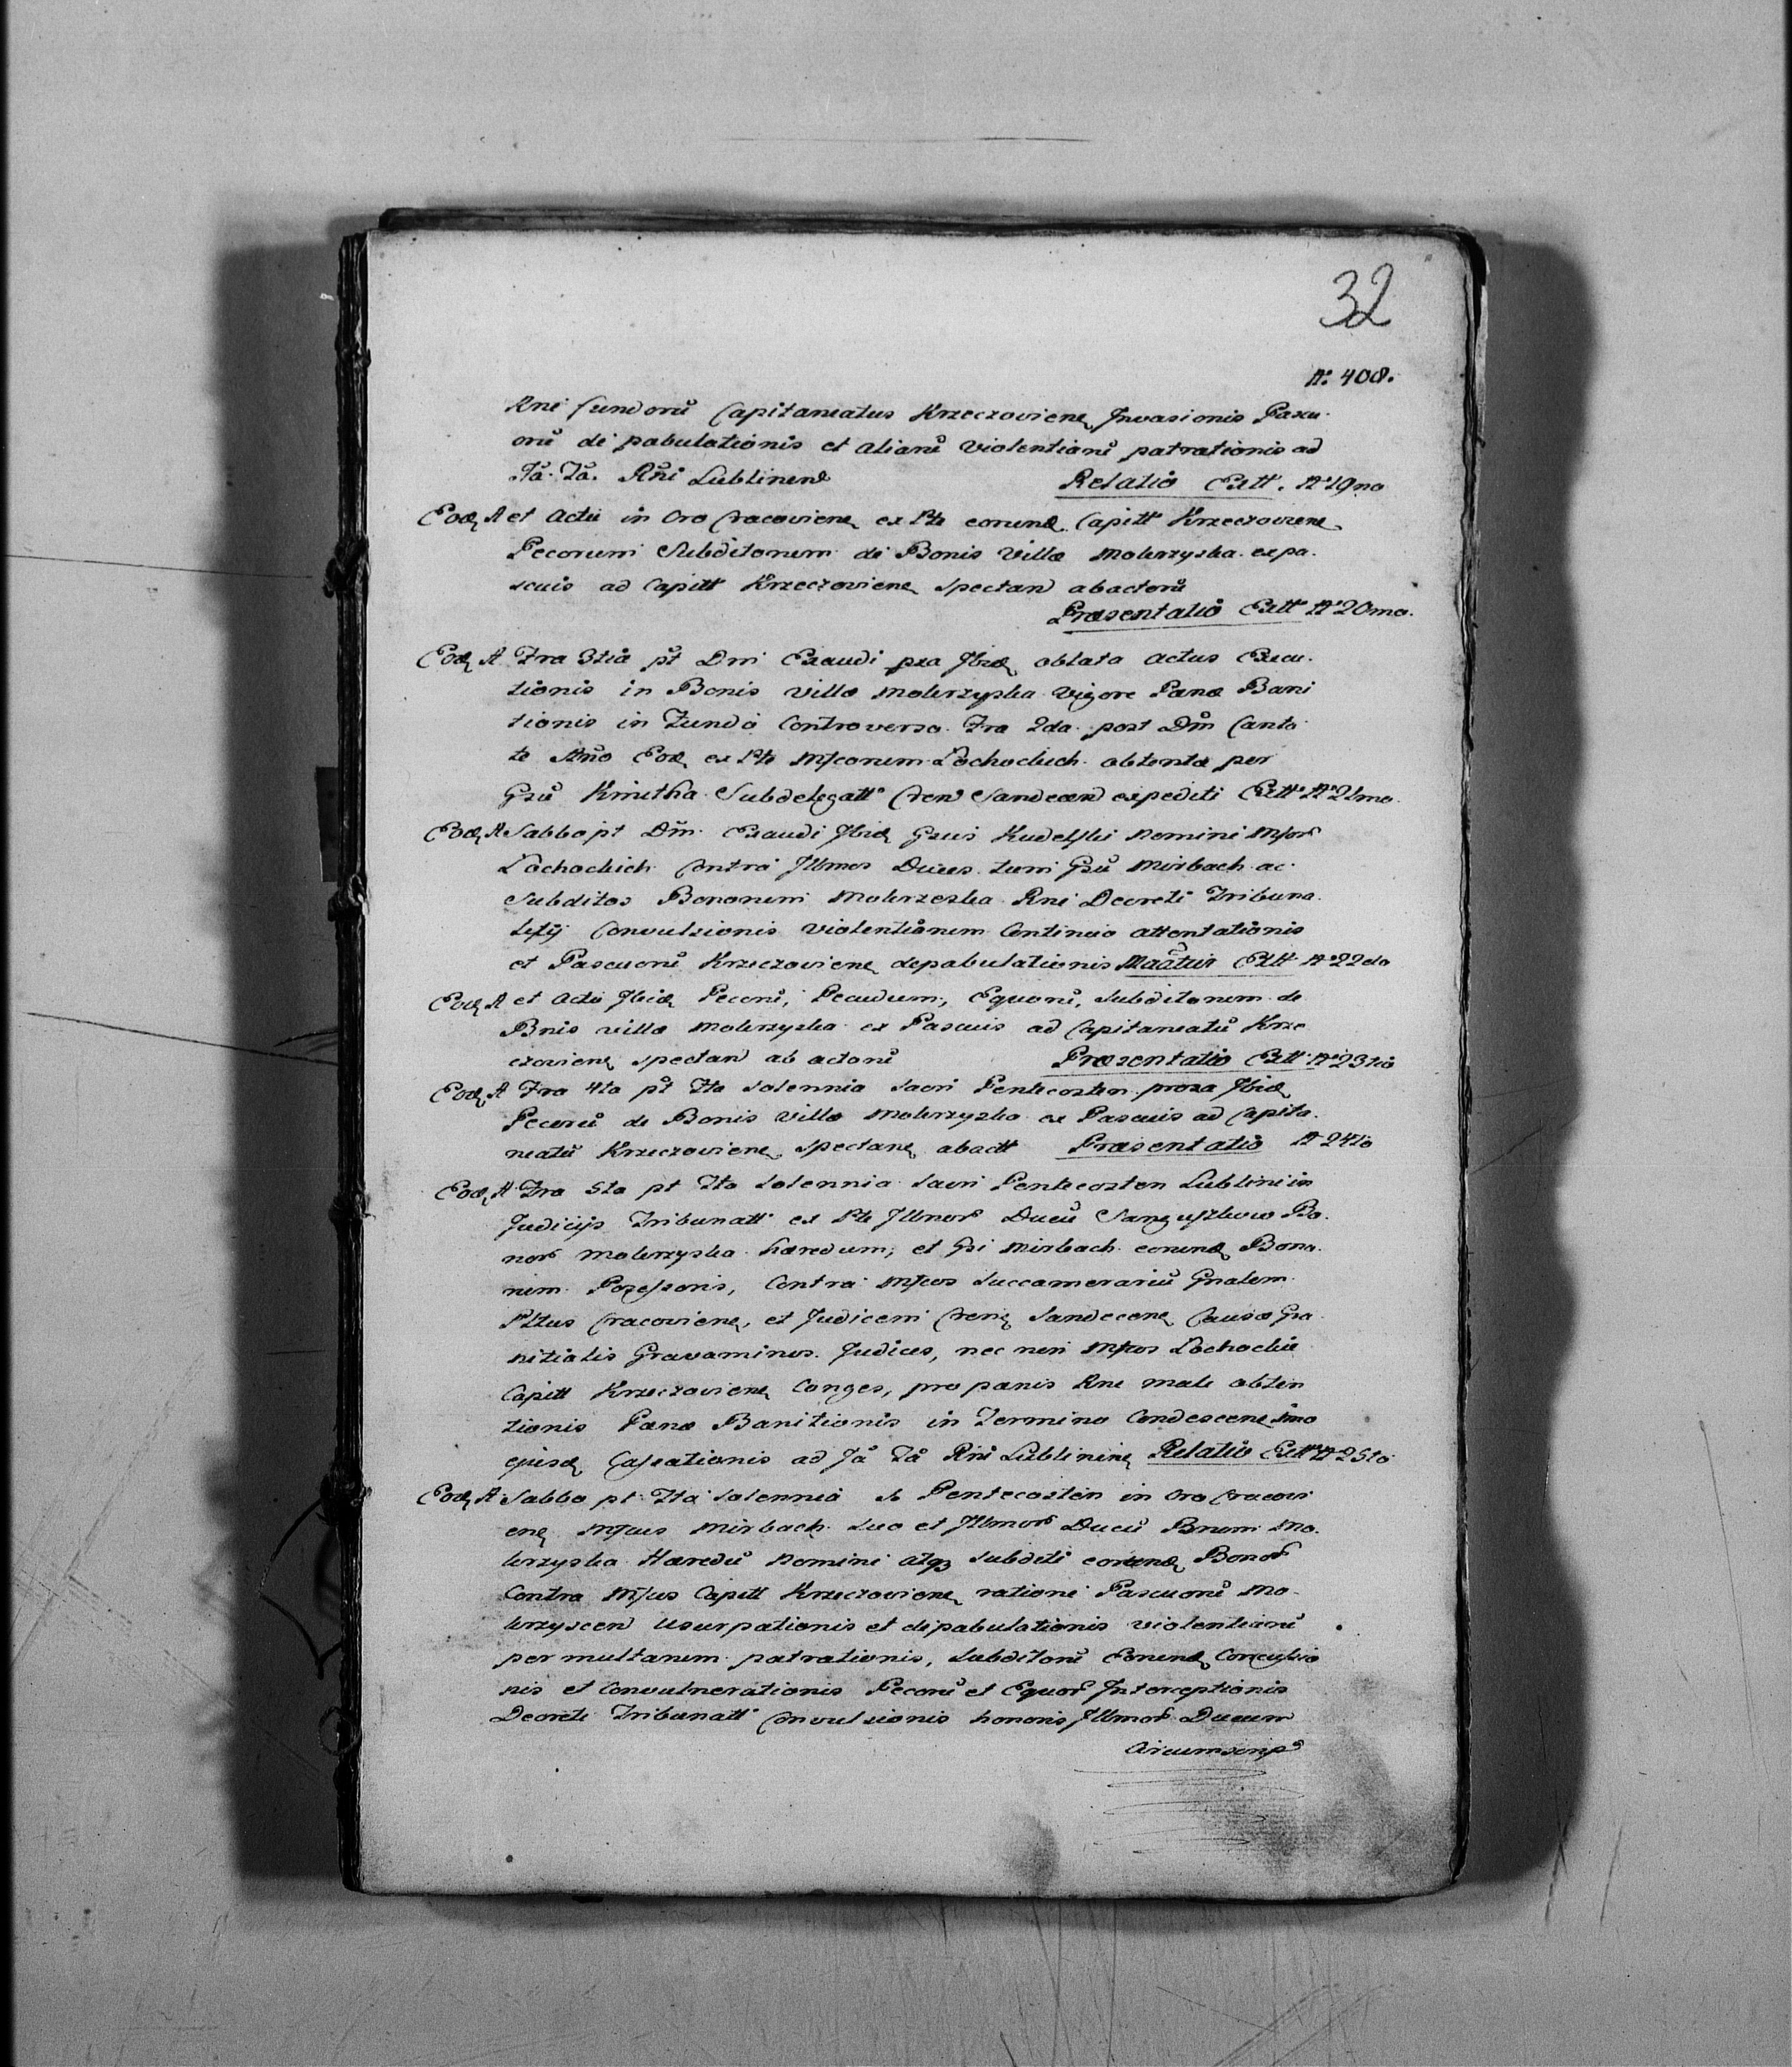 32
N. 408.
Rne fundorũ Capitaneatus Krzeczoviene Invasionis Pascu.
orũ depabulationis et aliarũ violentiarũ patrationis ad
Jã. Tã. Rñi Lublinen
Relatio Extt. N 19no
Eod A et actu in Cro Cracoviene ex Pte eorund Capitt Krzeczoviene
Pecorum Subditorum de Bonis Villæ Mokrzyska ex pa.
scuis ad Capitt Krzeczoviene Spectan abactorũ
Præsentatio Extt N 20mo.
Eod A Fra 3tia pt Dni Exaudi pxa Ibid oblata actus Execu.
tionis in Bonis Villæ Mokrzyska vigore Pænæ Bani
tionis in Fundo Controverso Fra 2da post Dm Canta
te Año Eod ex Pte Mfcorum Lochockich obtentæ per
Gsũ Kmitha Subdelegatt Cren Sandecen expediti Extt N 21mo
Eod A Sabbo pt Dm. Exaudi Ibid Gsus Kudelski nomine Mfcor
Lochockich Contra Illmos Duces tum Gsũ Mirbach ac
Subditos Bonorum Mokrzeska Rne Decreti Tribuna.
litij Convulsionis violentiarum Continuo attentationis
et Pascuorũ Krzeczoviene depabulationis Maãtur Extt N 22do
Eod A et actu Ibid Pecorũ, Pecudum, Equorũ, Subditorum de
Bnis villæ Mokrzyska ex Pascuis ad Capitaneatũ Krze
czoviene spectan abactorũ Præsentatio Extt N 23tio
Eod A Fra 4ta pt Fta Solennia Sacri Pentecosten proxa Ibid
Pecorũ de Bonis Villæ Mokrzyska ex Pascuis ad Capita.
neatũ Krzeczoviene Spectane abactt Præsentatio N 24to
Eod A Fra 5ta pt Fta Solennia Sacri Pentecosten Lublini in
Judicijs Tribunatt ex Pte Illmor Ducũ Sanguszkow Bo.
nor Mokrzyska hæredum, et Gsi Mirbach eorund Bono.
rum Possessoris, Contra Mfcos Succamerariũ Gnalem
Pttus Cracoviene, et Judicem Crene Sandecene Causæ Gra
nitialis Gravaminos. Judices, nec non Mfcos Lochockie
Capitt Krzeczoviene Conges, pro pænis Rne male obten
tionis Pænæ Banitionis in Termino Condescene imo
ejusd Cassationis ad Jã Tã Rñi Lublinine Relatio Extt N 25to
Eod A Sabbo pt Fta Solennia S Pentecosten in Cro Cracovi
ene Mfcus Mirbach suo et Illmor Ducũ Bnrum Mo.
krzyska Hæredũ nomine atq Subditi eorund Bonor
Contra Mfcus Capitt Krzeczoviene ratione Pascuorũ Mo
krzyscen usurpationis et depabulationis violentiarũ
per multarum patrationis, Subditorũ Eorund Concussio
nis et Convulnerationis Pecorũ et Equor Interceptionis
Decreti Tribunatt Convulsionis honoris Illmor Ducum
Circumscrip